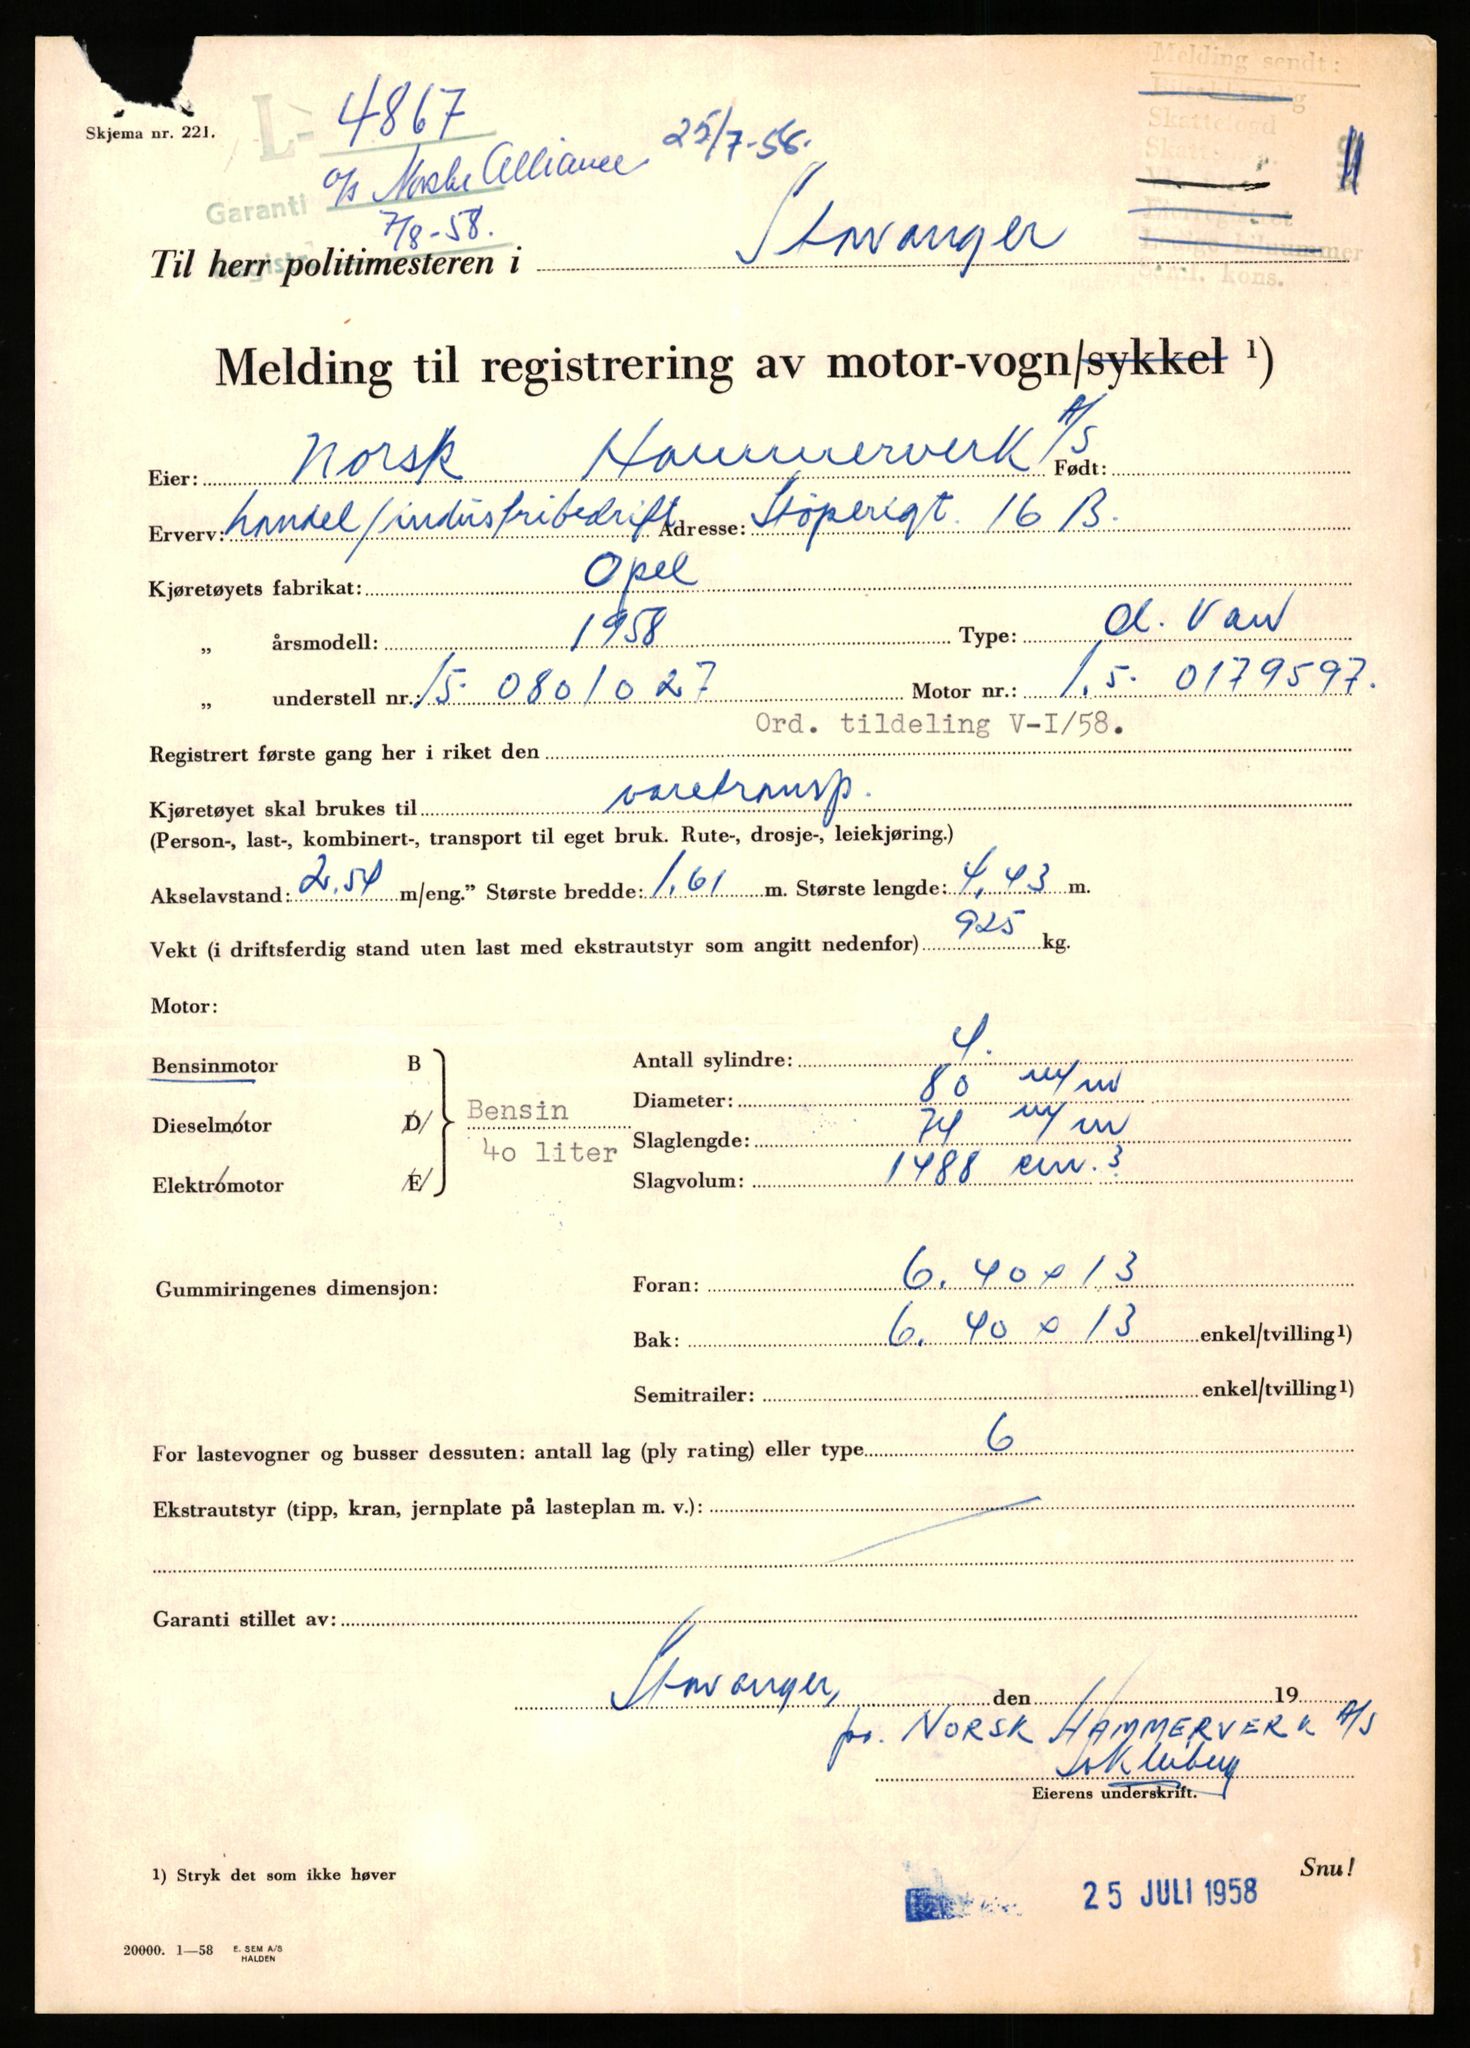 Melding sendt:
Skattefogd
Eierregistret
kons.
Skjema nr. 221.
L- 4867
A/S Norske Alliance 25/7-58.
Garanti
7/8-58.
Til herr politimesteren i Stavanger
Melding til registrering av motor-vogn/sykkel 1)
Eier: Norsk Hammerverk A/S Født:
Erverv: handel/industribedrift Adresse: Støperigt. 16 B.
Kjøretøyets fabrikat: Opel
„ årsmodell: 1958 Type: d. Van
„ understell nr.: 15-0801027 Motor nr.: 1,5-0179597.
Ord. tildeling V-I/58.
Registrert første gang her i riket den
Kjøretøyet skal brukes til varetransp.
(Person-, last-, kombinert-, transport til eget bruk. Rute-, drosje-, leiekjøring.)
Akselavstand: 2.54 m/eng.” Største bredde: 1.61 m. Største lengde: 4,43 m.
Vekt (i driftsferdig stand uten last med ekstrautstyr som angitt nedenfor) 925 kg.
Motor:
Bensinmotor B
Dieselmotor D
Elektromotor E
Bensin
40 liter
Antall sylindre: 4.
Diameter: 80 m/m
Slaglengde: 74 m/m
Slagvolum: 1488 cm.3
Gummiringenes dimensjon: Foran: 6.40 x 13
Bak: 6.40 x 13 enkel/tvilling1)
Semitrailer: enkel/tvilling1)
For lastevogner og busser dessuten: antall lag (ply rating) eller type 6
Ekstrautstyr (tipp, kran, jernplate på lasteplan m. v.):
Garanti stillet av:
Stavanger, den 19
for NORSK HAMMERVERK A/S
Eierens underskrift.
1) Stryk det som ikke høver
Snu!
25 JULI 1958
20000. 1—58 E. SEM A/S
HALDEN